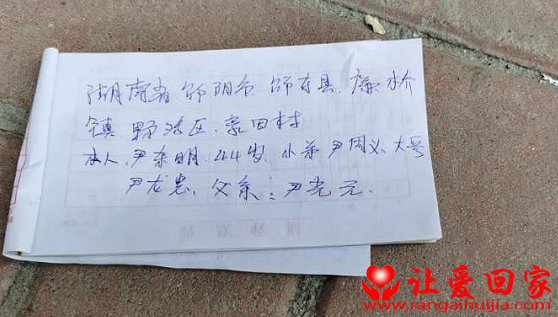 湖南省 邵阳市 邵东县 廉桥
镇 野鸡区 家田村
本人 尹东明 44岁 小弟 尹周义 大号
尹龙忠、父亲：尹光元.
让爱回家
www.rangaihuijia.com